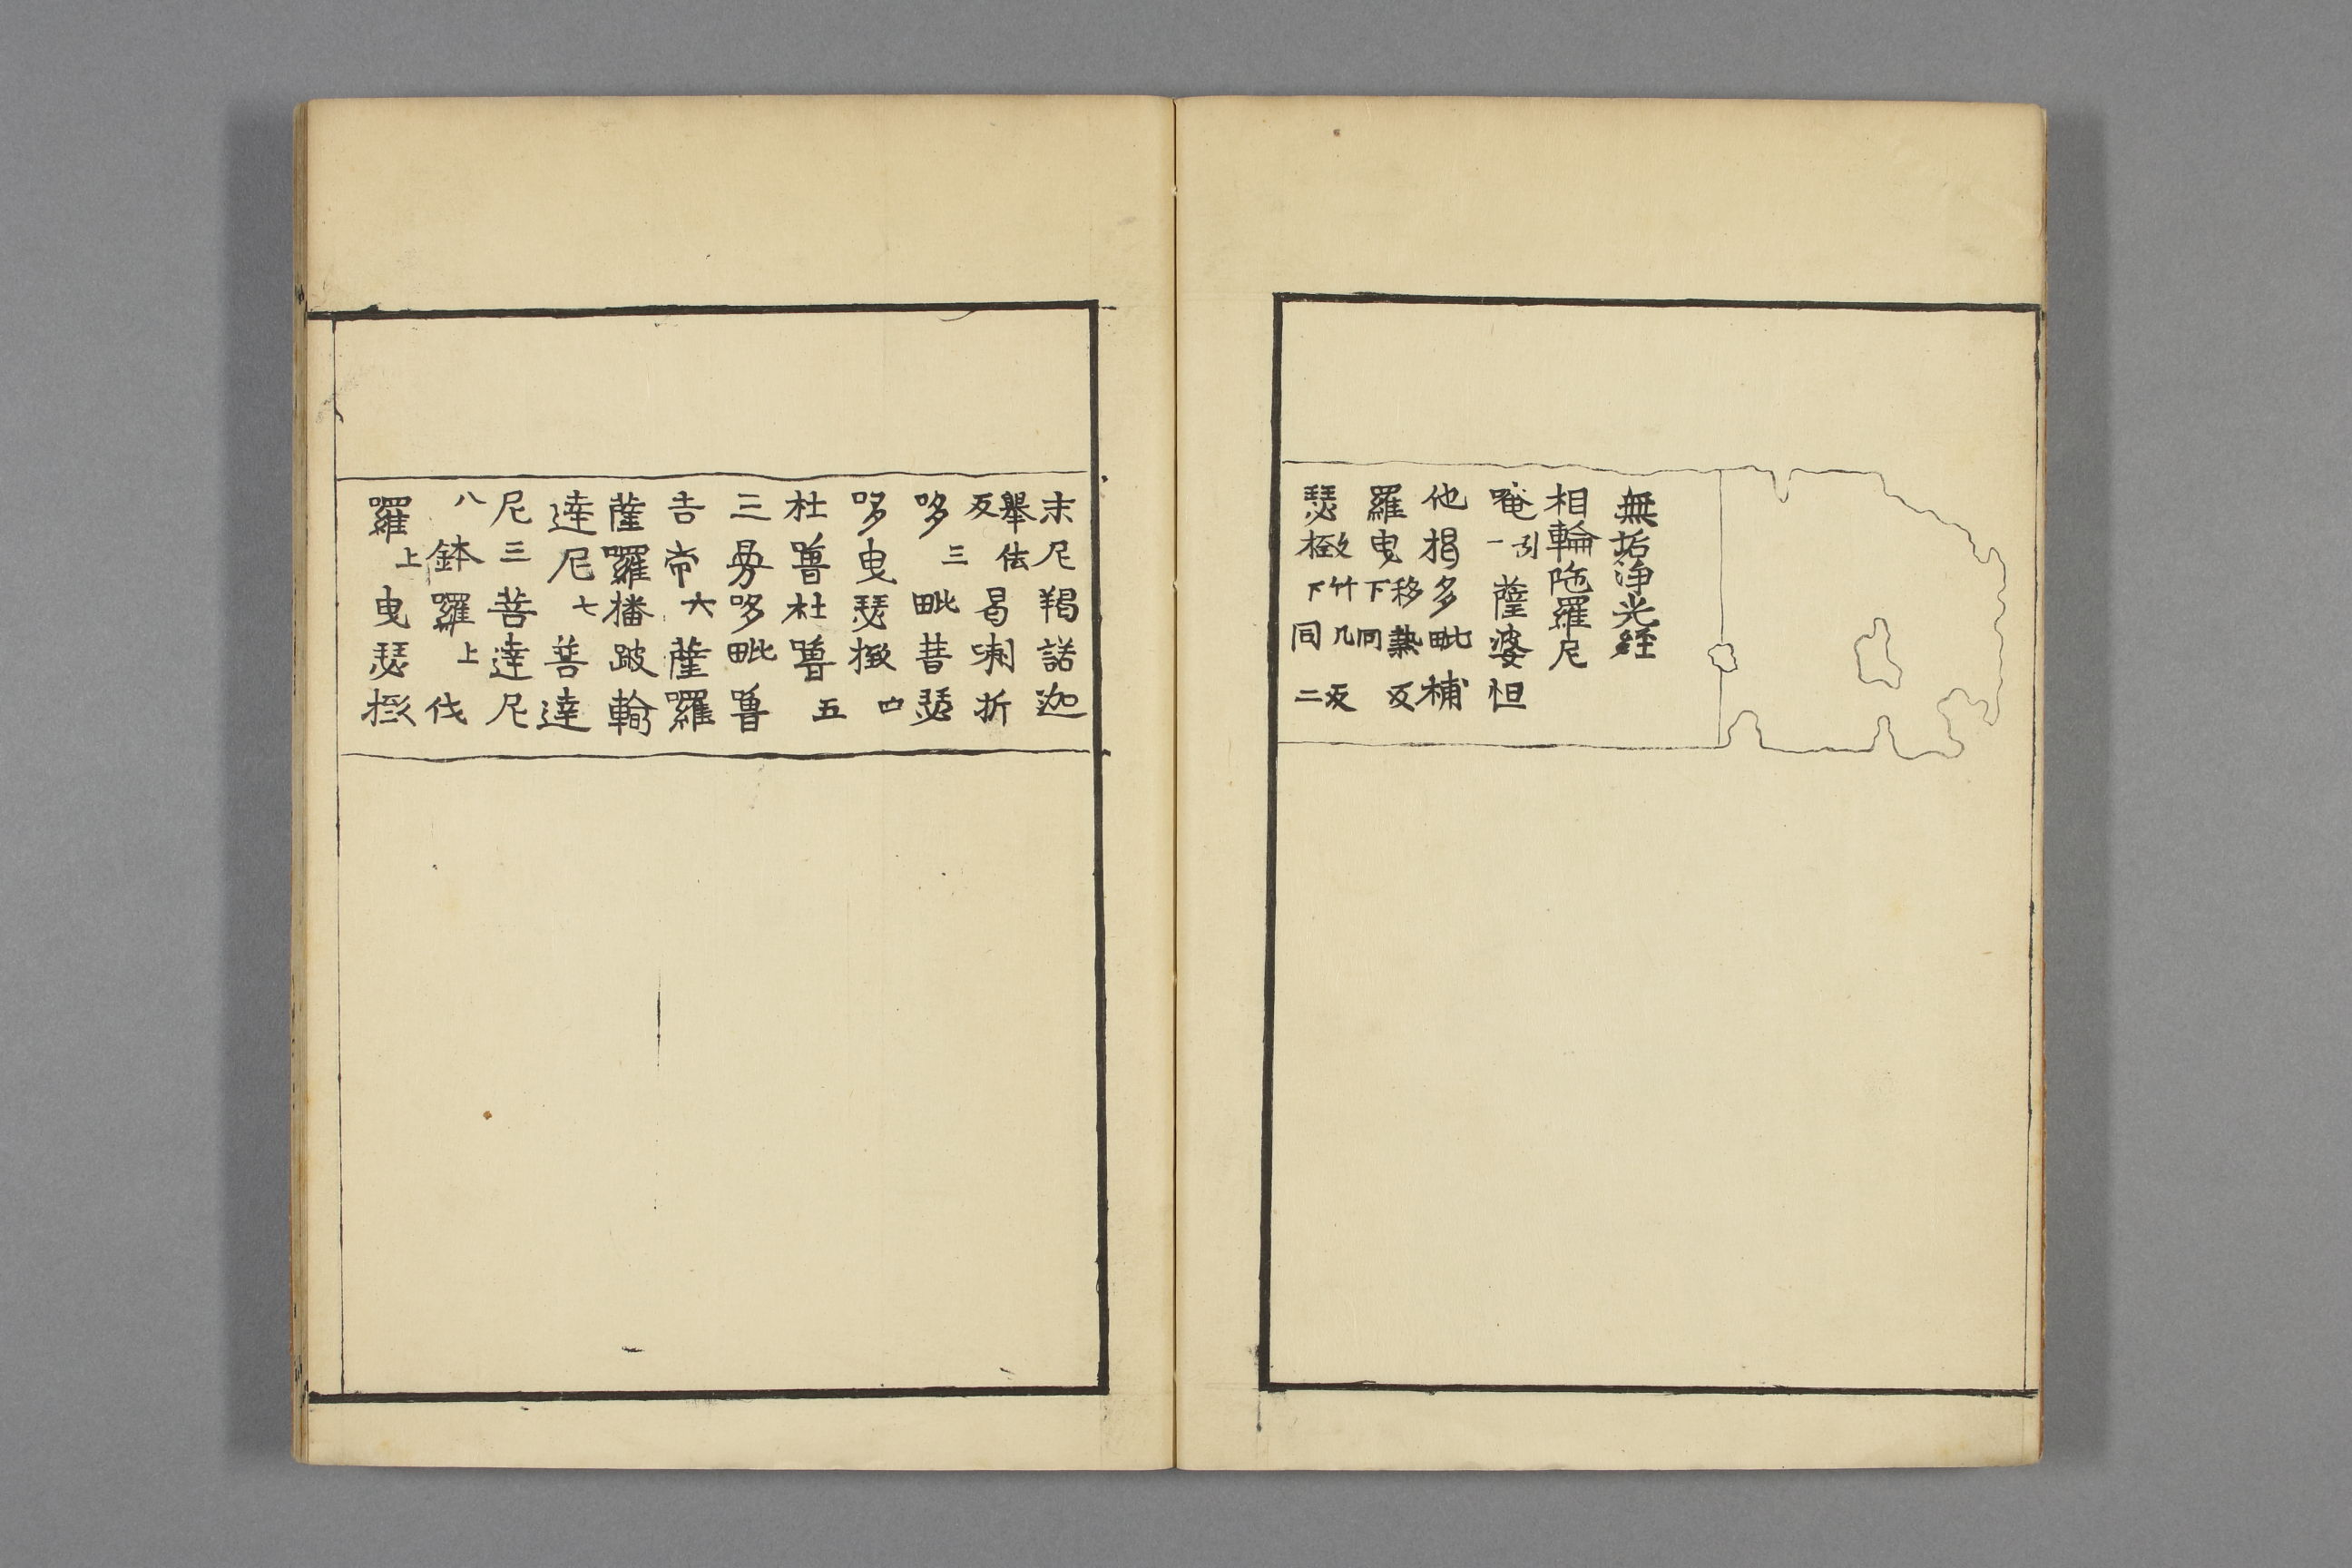 無垢浄光經
相輪陁羅尼
唵引一薩婆怛
他揭多毗補
羅曳移熱反下同
瑟㨖竹几反下同二
末尼羯諾迦
舉佉反曷喇折
哆三毗菩瑟
哆曳瑟㨖四
杜嚕杜嚕五
三曷哆毗嚕
吉帝六薩羅
薩囉播跛輸
達尼七菩達
尼三菩達尼
八鉢囉上伐
囉上曳瑟㨖